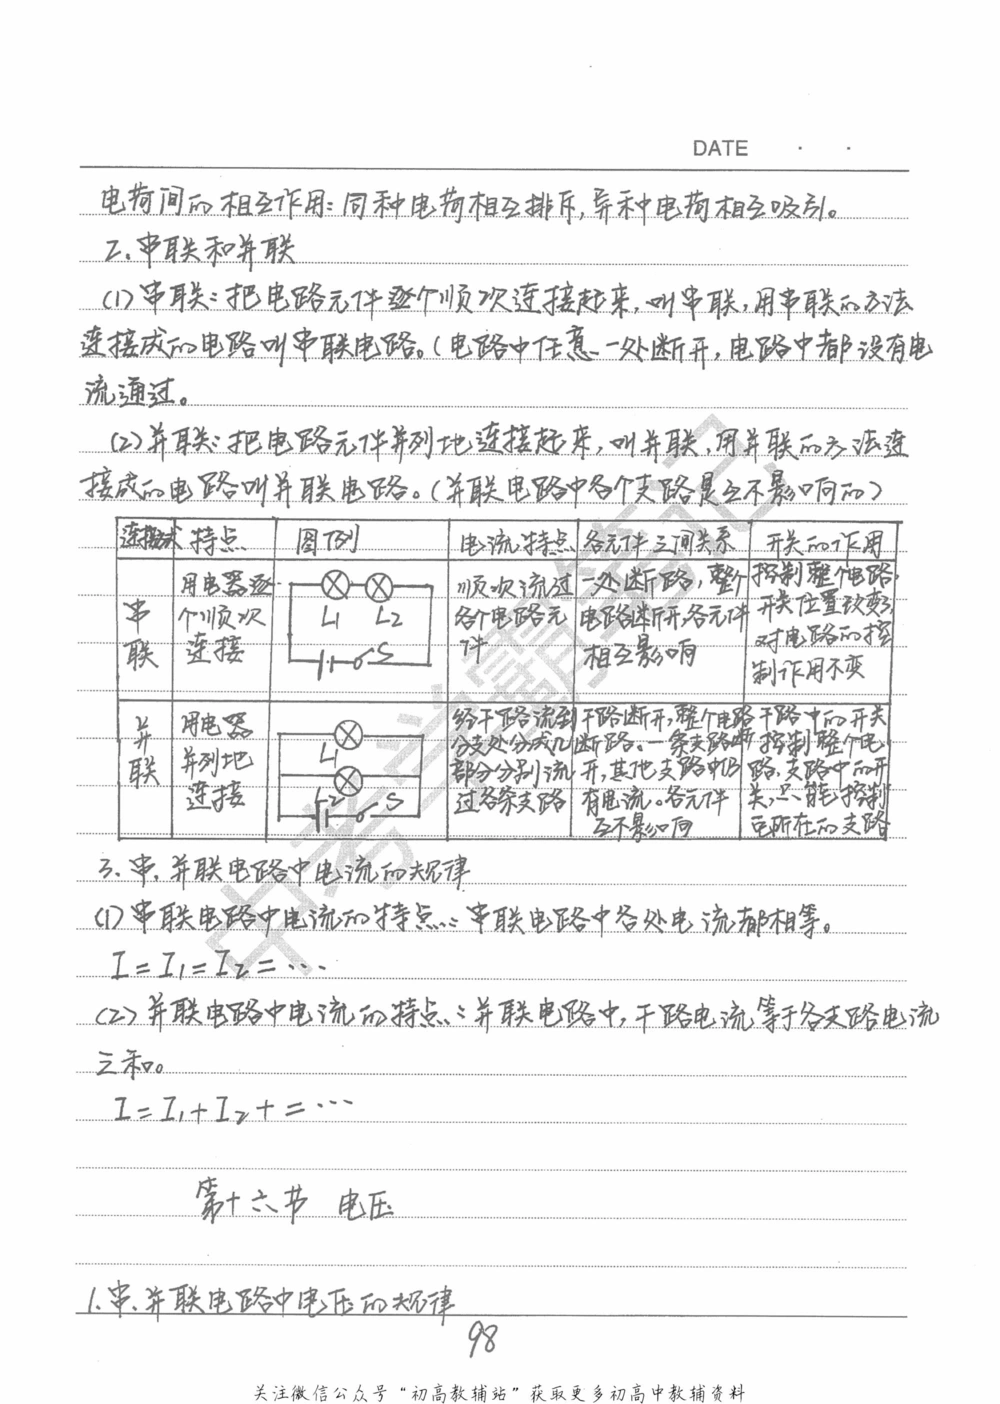 DATE · ·
电荷间的相互作用:同种电荷相互排斥,异种电荷相互吸引。
2.串联和并联
(1)串联:把电路元件逐个顺次连接起来,叫串联,用串联的方法
连接成的电路叫串联电路。(电路中任意一处断开,电路中都没有电
流通过。
(2)并联:把电路元件并列地连接起来,叫并联,用并联的方法连
接成的电路叫并联电路。(并联电路中各个支路是互不影响的)
连接方式 特点 图例 电流特点 各元件之间关系 开关的作用
串联
用电器逐
个顺次
连接
L1 L2
S
顺次流过
各个电路元
件
一处断路,整个
电路断开,各元件
相互影响
控制整个电路,
开关位置改变,
对电路的控
制作用不变
并联
用电器
并列地
连接
L1
L2 S
经干路流到
分支处分成几
部分分别流
过各条支路
干路断开,整个电路
断路。一条支路断
开,其他支路中仍
有电流。各元件
互不影响
干路中的开关
控制整个电
路,支路中的开
关,只能控制
它所在的支路
3.串、并联电路中电流的规律
(1)串联电路中电流的特点:串联电路中各处电流都相等。
I=I1=I2=…
(2)并联电路中电流的特点:并联电路中,干路电流等于各支路电流
之和。
I=I1+I2+=…
第十六节 电压
1.串、并联电路中电压的规律
98
关注微信公众号“初高教辅站”获取更多初高中教辅资料
中考学霸笔记